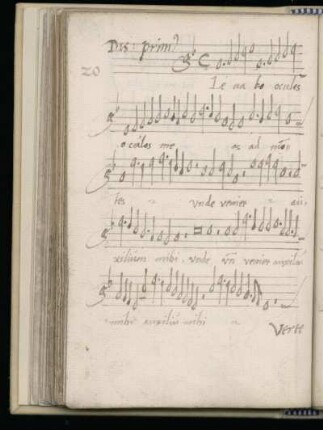 20
Le va bo oculos
oculos me os ad mo
tes unde veniet au
xilium mihi unde veniet auxiliu
mihi auxiliu mihi
Verte